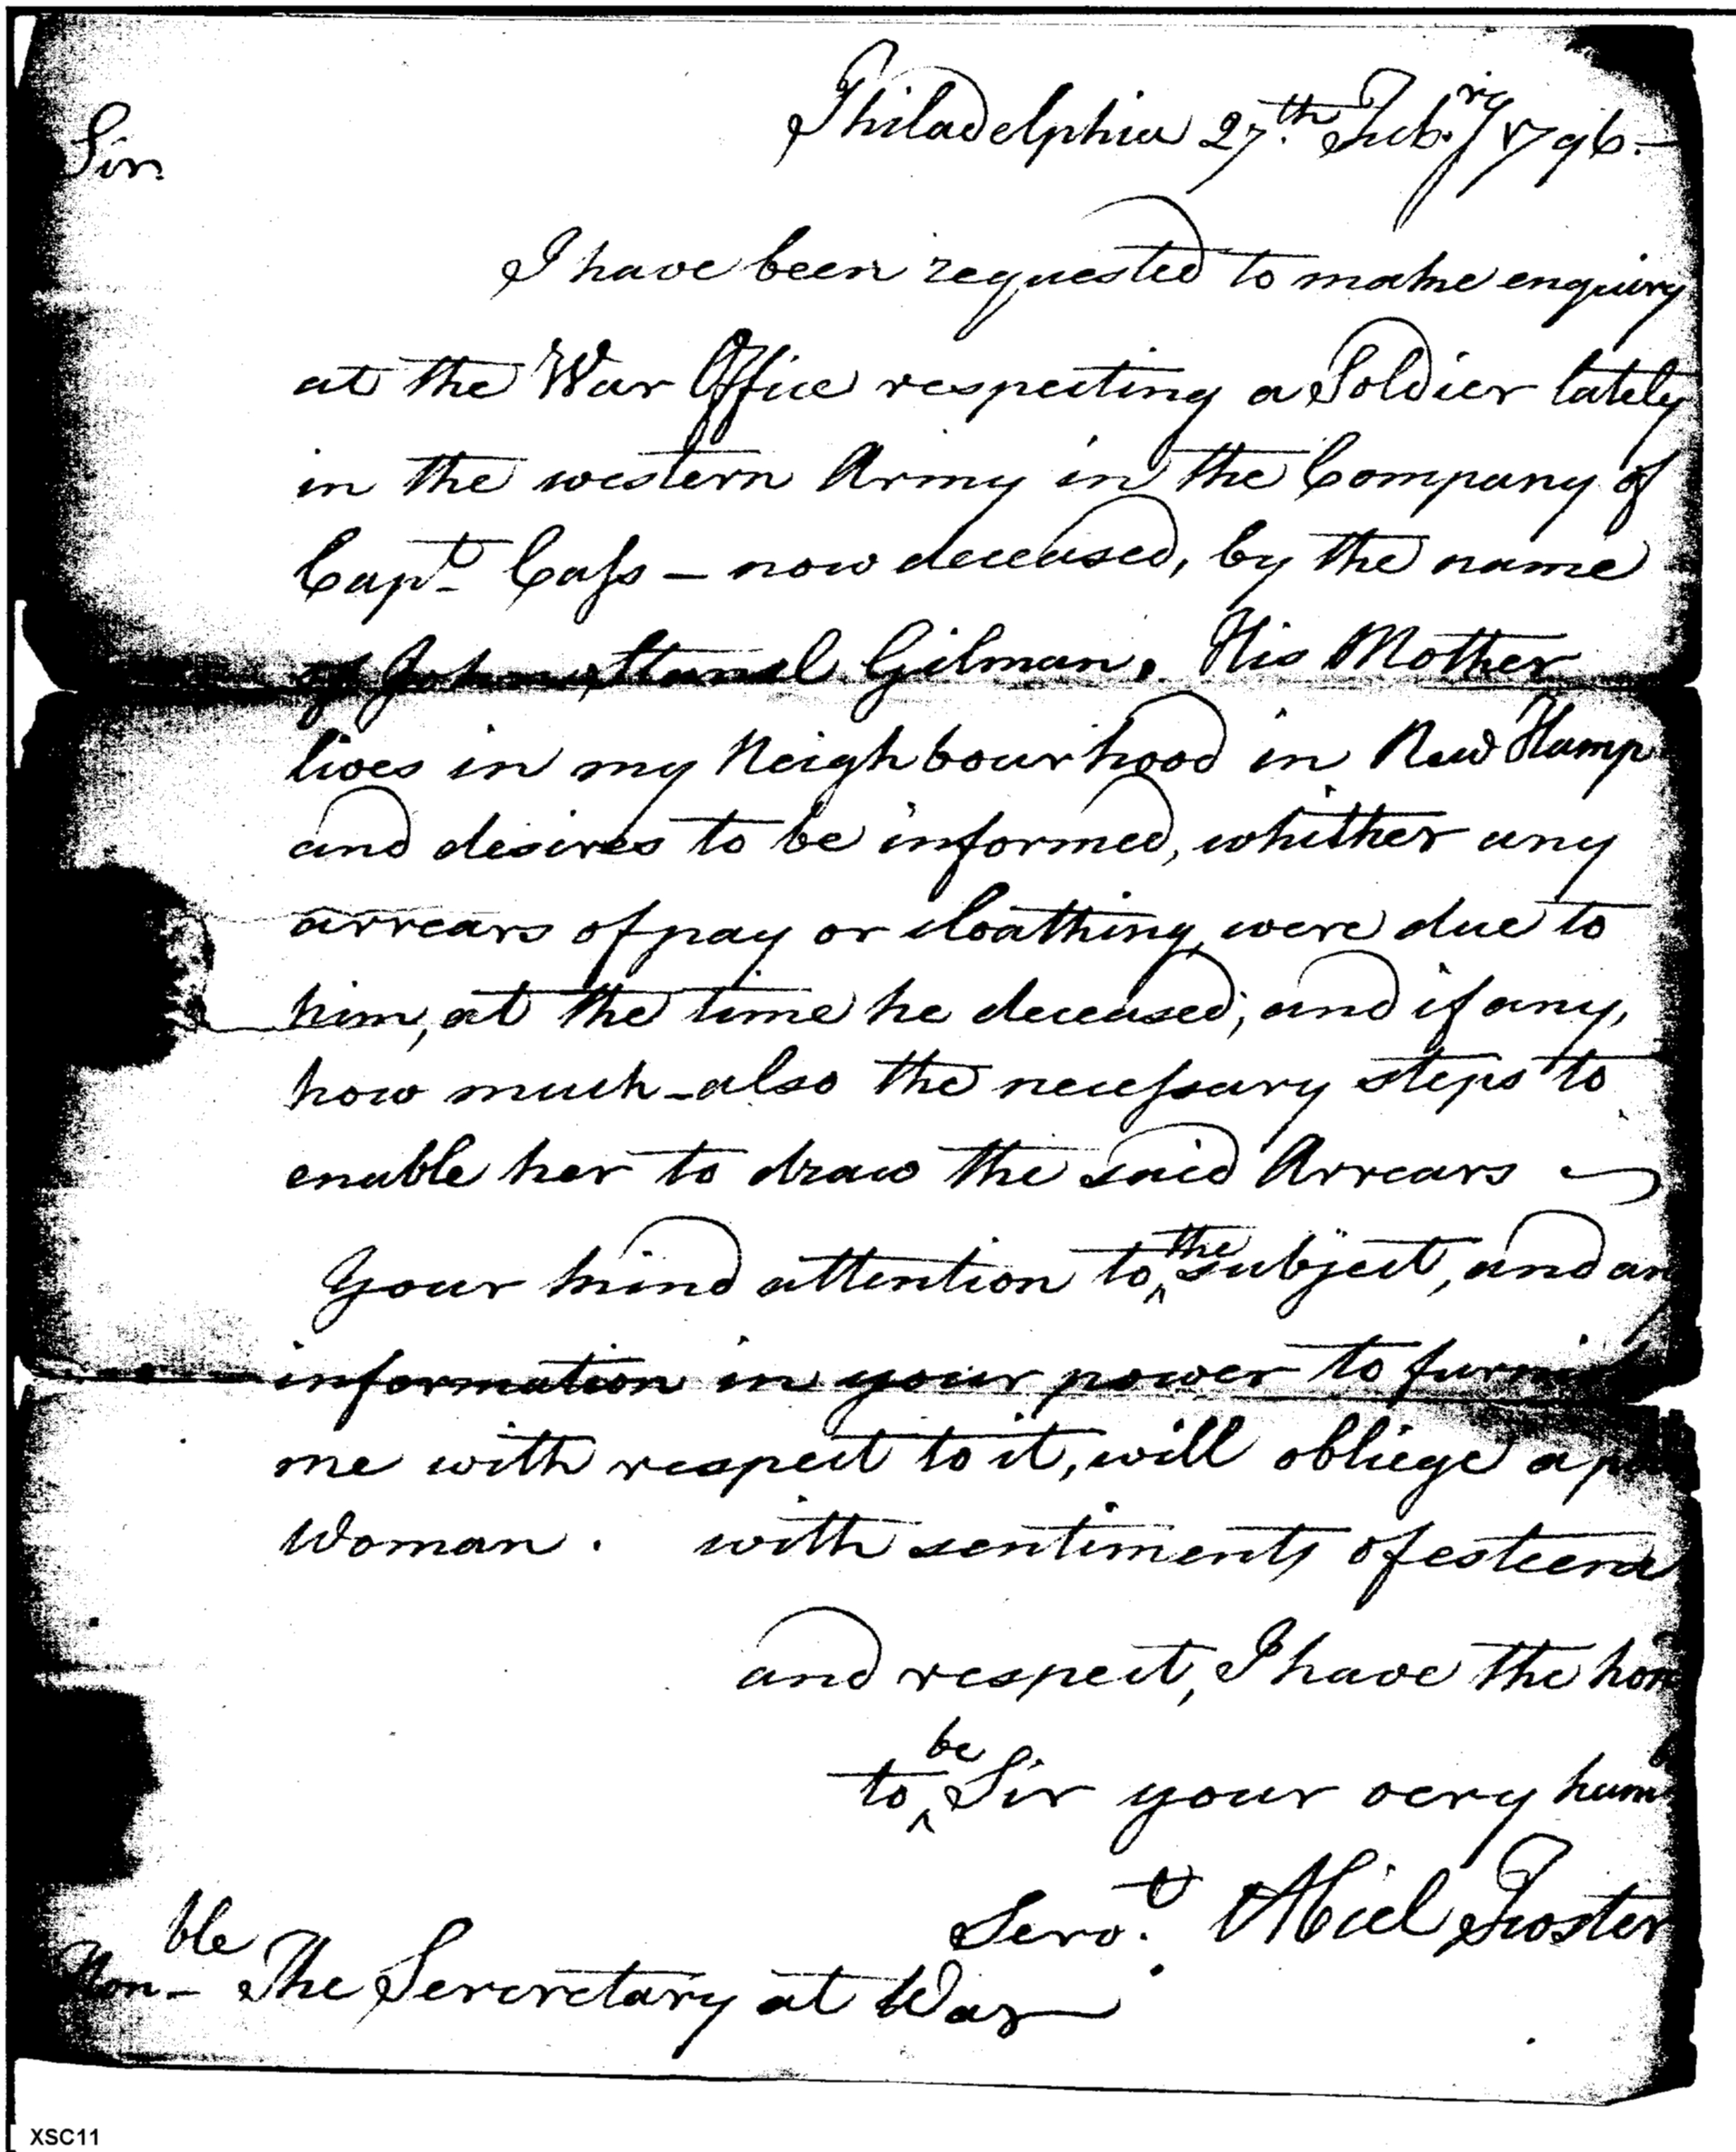 Philadelphia 27.th Feb.ry 1796.
Sir
I have been requested to make enquiry
at the War Office respecting a Soldier lately
in the western Army in the Company of
Capt. Cass – now deceased, by the name
of Gilman. His Mother
lives in my Neighbourhood in New Hamp
and desires to be informed, whither any
arrears of pay or cloathing were due to
him, at the time he deceased; and if any,
how much – also the necessary steps to
enable her to draw the said Arrears –
Your kind attention to the subject, and an
information in your power to furnis
me with respect to it, will obliege a
Woman. with sentiments of esteem
and respect, I have the hon
to be Sir your very hum
Serv.t Abiel Foster
Honble The Sercretary at War
XSC11